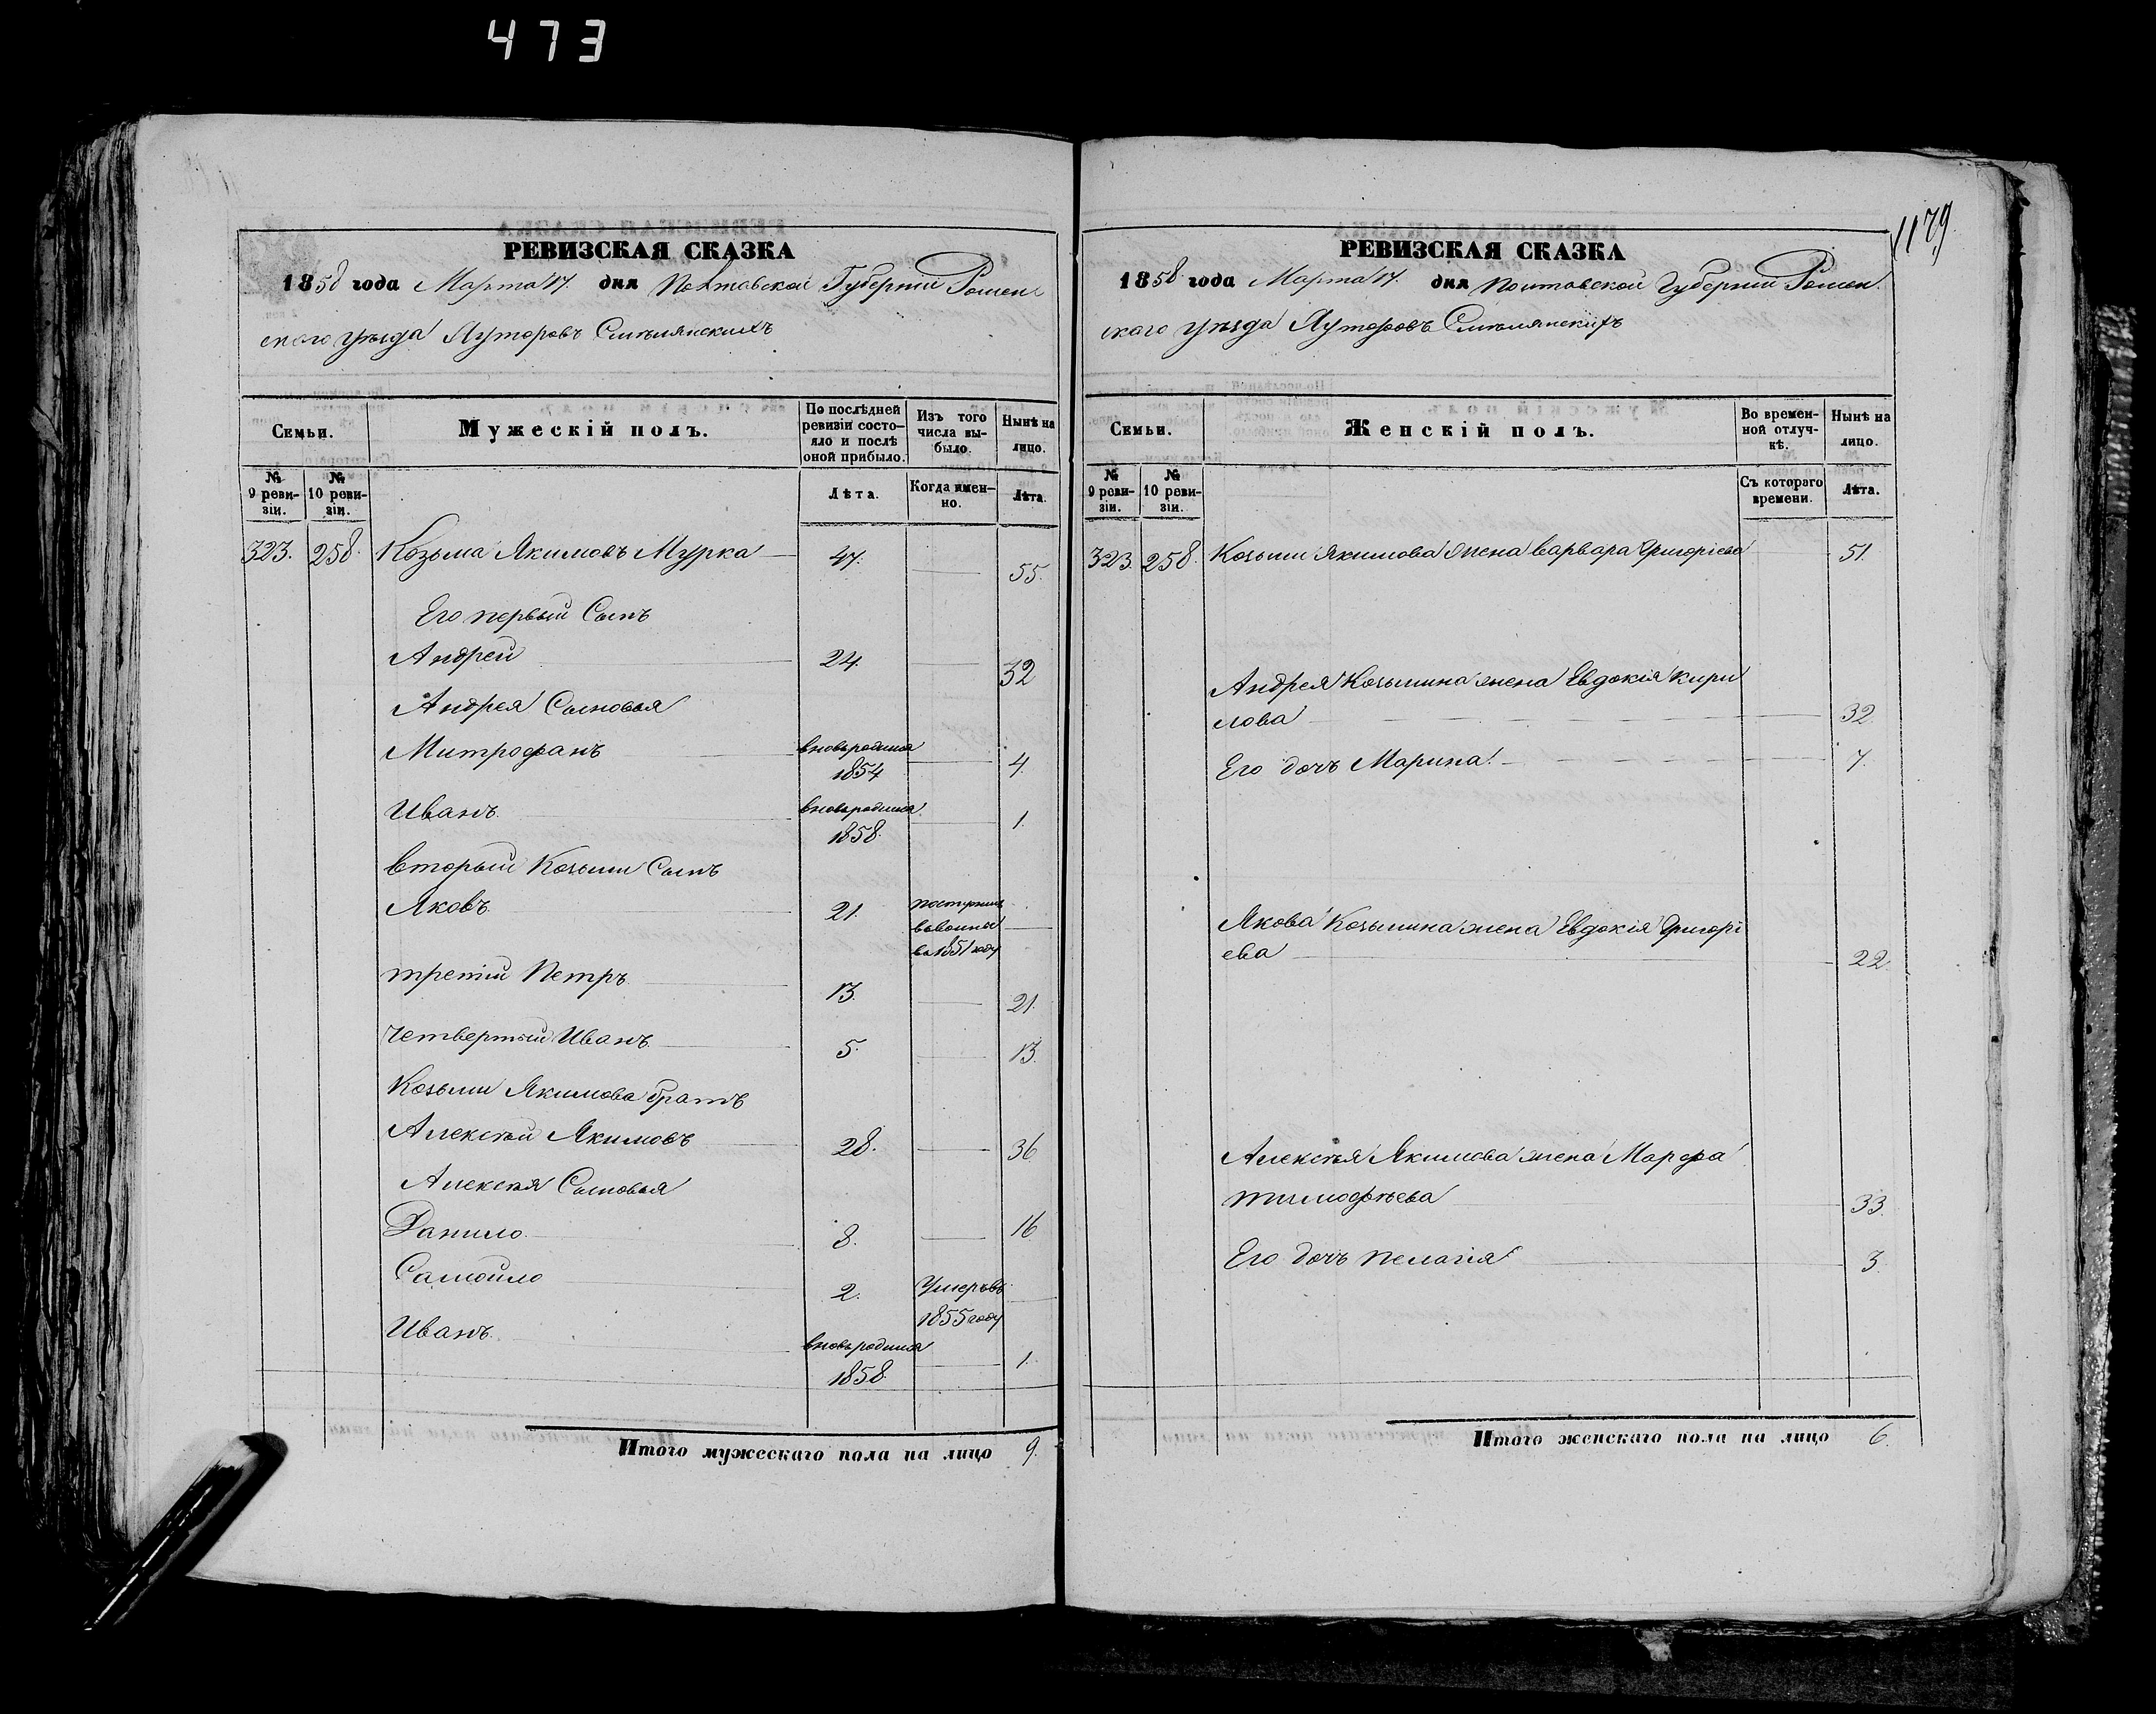 473
1179
РЕВИЗСКАЯ СКАЗКА
1858 года Марта 17. дня Полтавской Губерніи Ромен
ского уѣзда Хуторовъ Смѣлянскихъ
Семьи.
Мужескій полъ.
По послѣдней ревизіи состояло и послѣ оной прибыло.
Изъ того числа выбыло.
Нынѣ на лицо.
№ 9 ревизіи.
№ 10 ревизіи.
Лѣта.
Когда именно.
Лѣта.
323. 258. Козьма Якимовъ Мурка 47. 55.
Его первый Сынъ
Андрей 24. 32
Андрея Сыновья
Митрофанъ вновьродился 1854 4.
Иванъ вновьродился 1858. 1.
вторый Козьмы Сынъ
Яковъ 21. поступилъ
ввоинск
въ 1851 году
третій Петръ 13. 21.
четвертый Иванъ 5. 13.
Козьмы Якимова братъ
Алексѣй Якимовъ 28. 36
Алексѣя Сыновья
Данило 8. 16
Самойло 2. Умеръ въ
1855 году
Иванъ вновьродился 1858 1.
Итого мужескаго пола на лицо 9.
РЕВИЗСКАЯ СКАЗКА
1858 года Марта 17. дня Полтавской Губерніи Ромен
ского уѣзда Хуторовъ Смѣлянскихъ
Семьи.
Женскій полъ.
Во временной отлучкѣ.
Нынѣ на лицо.
№ 9 ревизіи.
№ 10 ревизіи.
Съ котораго времени.
Лѣта.
323. 258. Козьмы Якимова жена Варвара Григоріева 51.
Андрея Козьмина жена Евдокія Кири
лова 32
Его дочь Марина 7.
Якова Козьмина жена Евдокія Григорі
ева 22
Алексѣя Якимова жена Марфа
тимофѣева 33.
Его дочь пелагія 3.
Итого женскаго пола на лицо 6.